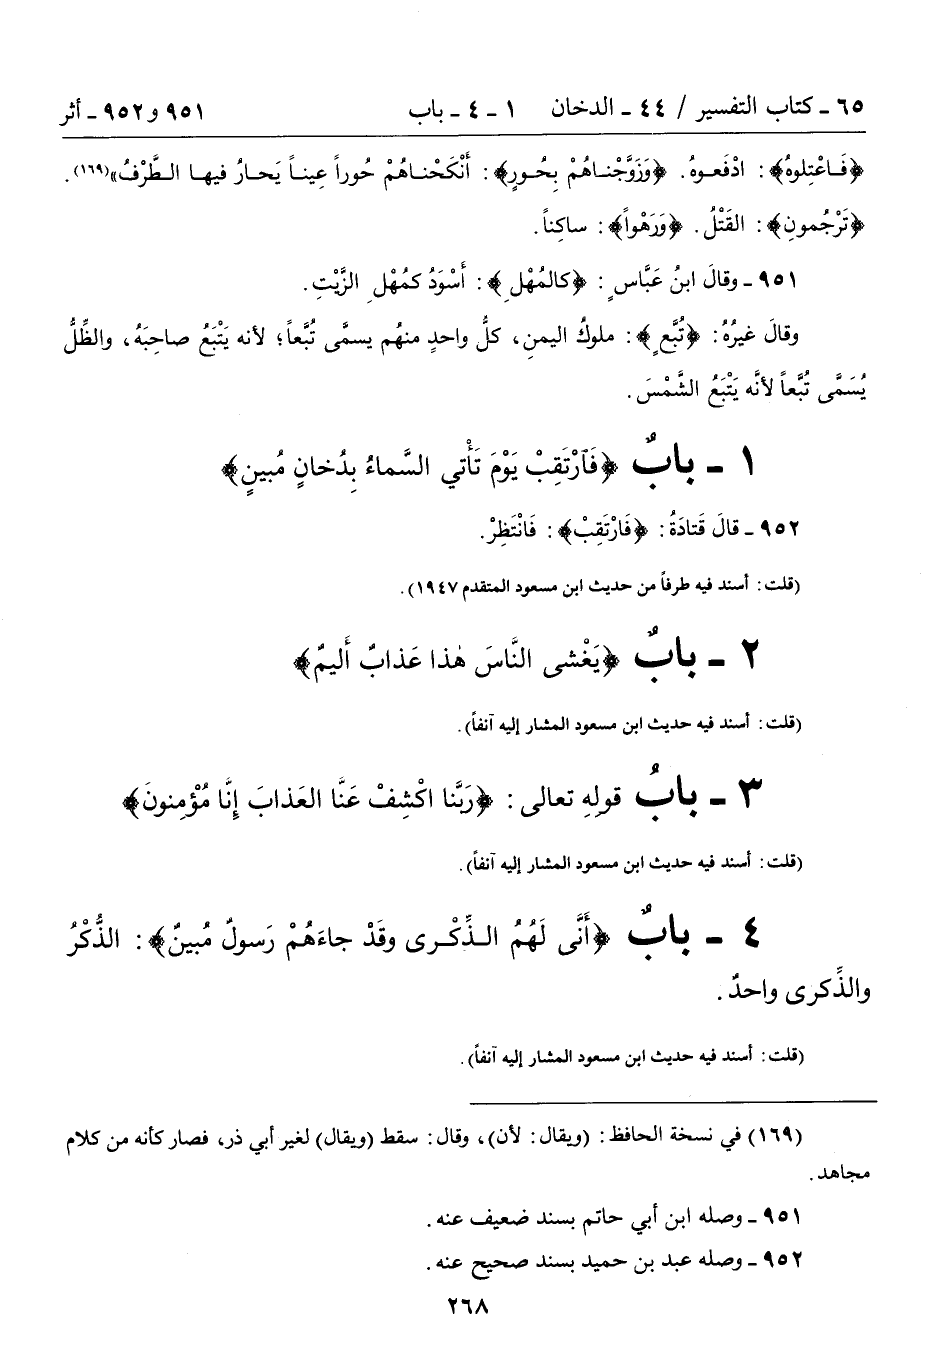 ٦٥ ـ كتاب التفسير / ٤٤ ـ الدخان ١ ـ ٤ ـ باب ٩٥١ و٩٥٢ ـ أثر
﴿فَاعْتِلوهُ﴾: ادْفَعوهُ. ﴿وَزَوَّجْناهُمْ بِحُورٍ﴾: أَنْكَحْناهُمْ حُوراً عِيناً يَحارُ فيها الطَّرْفُ»(١٦٩).
﴿تَرْجُمونِ﴾: القَتْلُ. ﴿وَرَهْواً﴾: ساكِناً.
٩٥١ ـ وقالَ ابنُ عَبَّاسٍ: ﴿كالمُهْلِ﴾: أَسْوَدُ كمُهْلِ الزَّيْتِ.
وقالَ غيرُهُ: ﴿تُبَّعٍ﴾: ملوكُ اليمنِ، كلُّ واحدٍ منهُم يسمَّى تُبَّعاً؛ لأنه يَتْبَعُ صاحِبَهُ، والظِّلُّ
يُسَمَّى تُبَّعاً لأنَّه يَتْبَعُ الشَّمْسَ.
١ ـ بابٌ ﴿فَٱرْتَقِبْ يَوْمَ تَأْتي السَّماءُ بِدُخانٍ مُبينٍ﴾
٩٥٢ ـ قالَ قَتادَةُ: ﴿فَارْتَقِبْ﴾: فَانْتَظِرْ.
(قلت: أسند فيه طرفاً من حديث ابن مسعود المتقدم ١٩٤٧).
٢ ـ بابٌ ﴿يَغْشى النَّاسَ هٰذا عَذابٌ أَليمٌ﴾
(قلت: أسند فيه حديث ابن مسعود المشار إليه آنفاً).
٣ ـ بابُ قولِهِ تعالى: ﴿رَبَّنا اكْشِفْ عَنَّا العَذابَ إِنَّا مُؤْمِنونَ﴾
(قلت: أسند فيه حديث ابن مسعود المشار إليه آنفاً).
٤ ـ بابٌ ﴿أَنَّى لَهُمُ الذِّكْرى وقَدْ جاءَهُمْ رَسولٌ مُبينٌ﴾: الذِّكْرُ
والذِّكرى واحدٌ.
(قلت: أسند فيه حديث ابن مسعود المشار إليه آنفاً).
(١٦٩) في نسخة الحافظ: (ويقال: لأن)، وقال: سقط (ويقال) لغير أبي ذر، فصار كأنه من كلام
مجاهد.
٩٥١ ـ وصله ابن أبي حاتم بسند ضعيف عنه.
٩٥٢ ـ وصله عبد بن حميد بسند صحيح عنه.
٢٦٨